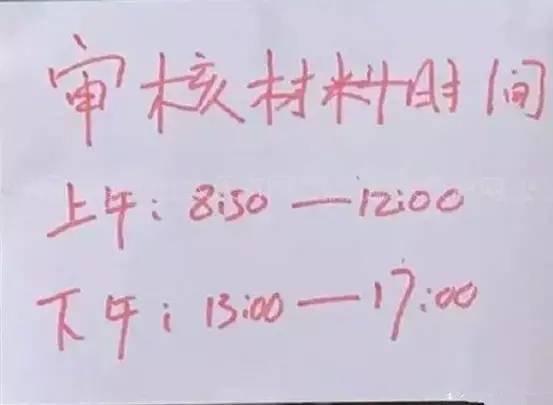 审核材料时间
上午：8:50—12:00
下午：13:00—17:00